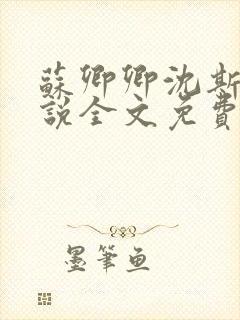 蘇卿卿沈斯
說全文免費
墨筆魚